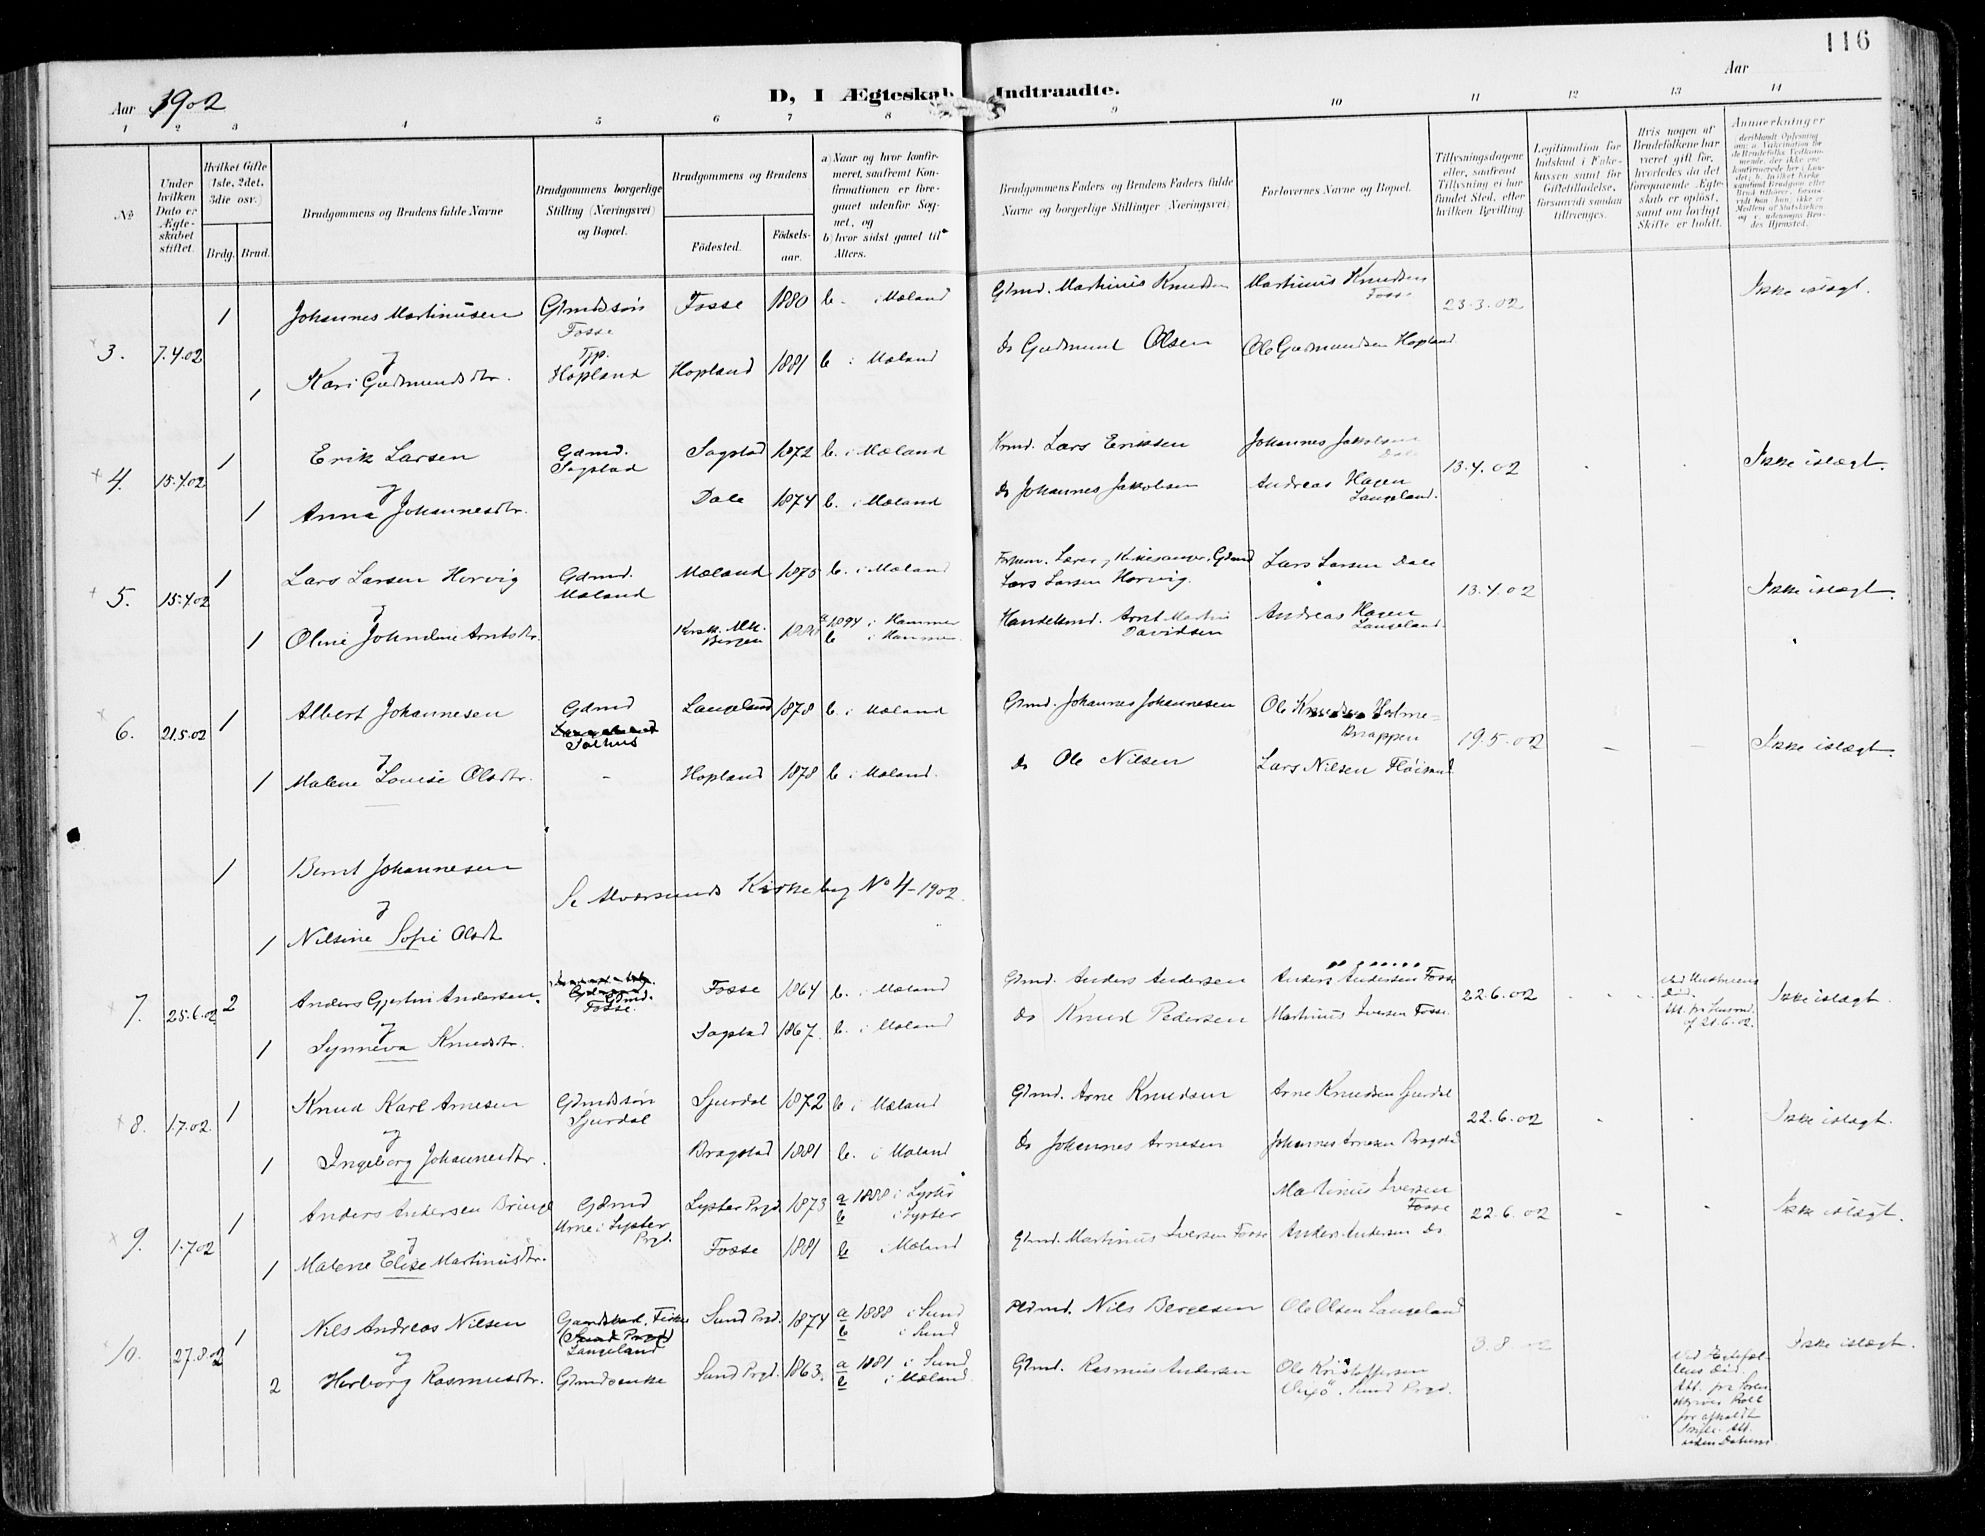 116
Aar 1902
D, I Ægteskab Indtraadte.
Aar
1 2 3 4 5 6 7 8 9 10 11 12 13 14
No.
Under hvilken Dato er Ægteskabet stiftet.
Hvilket Gifte 1ste, 2det, 3die osv.)
Brdg. Brud.
Brudgommens og Brudens fulde Navne
Brudgommens borgerlige Stilling (Næringsvei) og Bopæl.
Brudgommens og Brudens
Födested.
Födselsaar.
a) Naar og hvor konfirmeret, saafremt Konfirmationen er foregaaet udenfor Sognet, og
b) hvor sidst gaaet til Alters.
Brudgommens Faders og Brudens Faders fulde Navne og borgerlige Stillinger (Næringsvei)
Forlovernes Navne og Bopæl.
Tillysningsdagene eller, saafremt Tillysning ei har fundet Sted, efter hvilken Bevilling.
Legitimation for Indskud i Enkekassen samt for Giftetilladelse, forsaavidt saadan tiltrænges.
Hvis nogen af Brudefolkene har været gift för, hvorledes da det foregaaende Ægteskab er oplöst, samt om lovligt Skifte er holdt.
Anmærkninger
3. 7.4.02 1 Johannes Martinusen Gdmdssön Fosse Fosse 1880 b. i Mæland Gdmd. Martinus Knudsen Martinus Knudsen Fosse 23.3.02 Ikke islægt.
og
1 Kari Gudmundsdtr. Tjp. Hopland Hopland 1881 b. i Mæland do Gudmund Olsen Ole Gudmundsen Hopland
4. 15.4.02 1 Erik Larsen Gdmd. Sagstad Sagstad 1872 b. i Mæland Lars Eriksen Johannes Jakobsen Dale 13.4.02 Ikke islægt.
og
1 Anna Johannesdtr. Dale 1874 b. i Mæland do Johannes Jakobsen Andreas Hagen Langeland.
5. 15.4.02 1 Lars Larsen Hervig Gdmd. Mæland Mæland 1875 b. i Mæland Lærer, Kirkesanger, Gdmd Lars Larsen Hervig. Lars Larsen Dale 13.4.02 Ikke islægt.
og
1 Oline Arntsdtr. Bergen a 1894 i Hammer b i Hammer Handelsmd. Arnt Martin Davidsen Andreas Hagen Langeland.
6. 21.5.02 1 Albert Johannesen Gdmd Langeland 1878 b. i Mæland Gdmd. Johannes Johannesen 19.5.02 Ikke islægt.
og
1 Malene Louise Olsdtr. - Hopland 1878 b. i Mæland. do Ole Nilsen Lars Nilsen
1 Bernt Johannesen
og Se Alversunds Kirkebog No 4 - 1902.
1 Nilsine Sofie Olsdt
7. 25.6.02 2 Anders Gjertin Andersen. Gdmd. Fosse. Fosse 1864 b. i Mæland Gdmd. Anders Andersen Anders Andersen Fosse 22.6.02 Ikke islægt.
og
1 Synneva Knudsdtr. Sagstad 1867. b. i Mæland do Knud Pedersen Martinus Iversen Fosse.
8. 1.7.02 1 Knud Karl Arnesen Gdmdssön Sjurdal Sjurdal 1872 b i Mæland Gdmd. Arne Knudsen Arne Knudsen Sjurdal 22.6.02 Ikke islægt.
og
1 Ingeborg Johannesdtr. Bragstad 1881 b. i Mæland do Johannes Arnesen Johannes Arnesen Bragstad
9. 1.7.02 1 Anders Andersen Gdmd Urne i Lyster Prgd. Lyster Prgd 1873 a 1888 i Lyster b i Lyster Martinus Iversen Fosse 22.6.02 Ikke islægt.
og
1 Malene Elise Martinusdtr. Fosse 1881 b i Mæland Gdmd. Martinus Iversen Fosse Anders Andersen do
10. 27.8.02 1 Nils Andreas Nilsen (Sund Prgd) Langeland Sund Prgd. 1874 a 1888 i Sund b i Sund Nils Bergesen Ole Olsen Langeland 3.8.02 Ikke islægt.
og
2 Herborg Rasmusdtr. Gdmdsenke Sund Prgd. 1863. a 1881 i Sund b i Mæland Gdmd. Rasmus Andersen Ole Kristoffersen Sund Prgd.